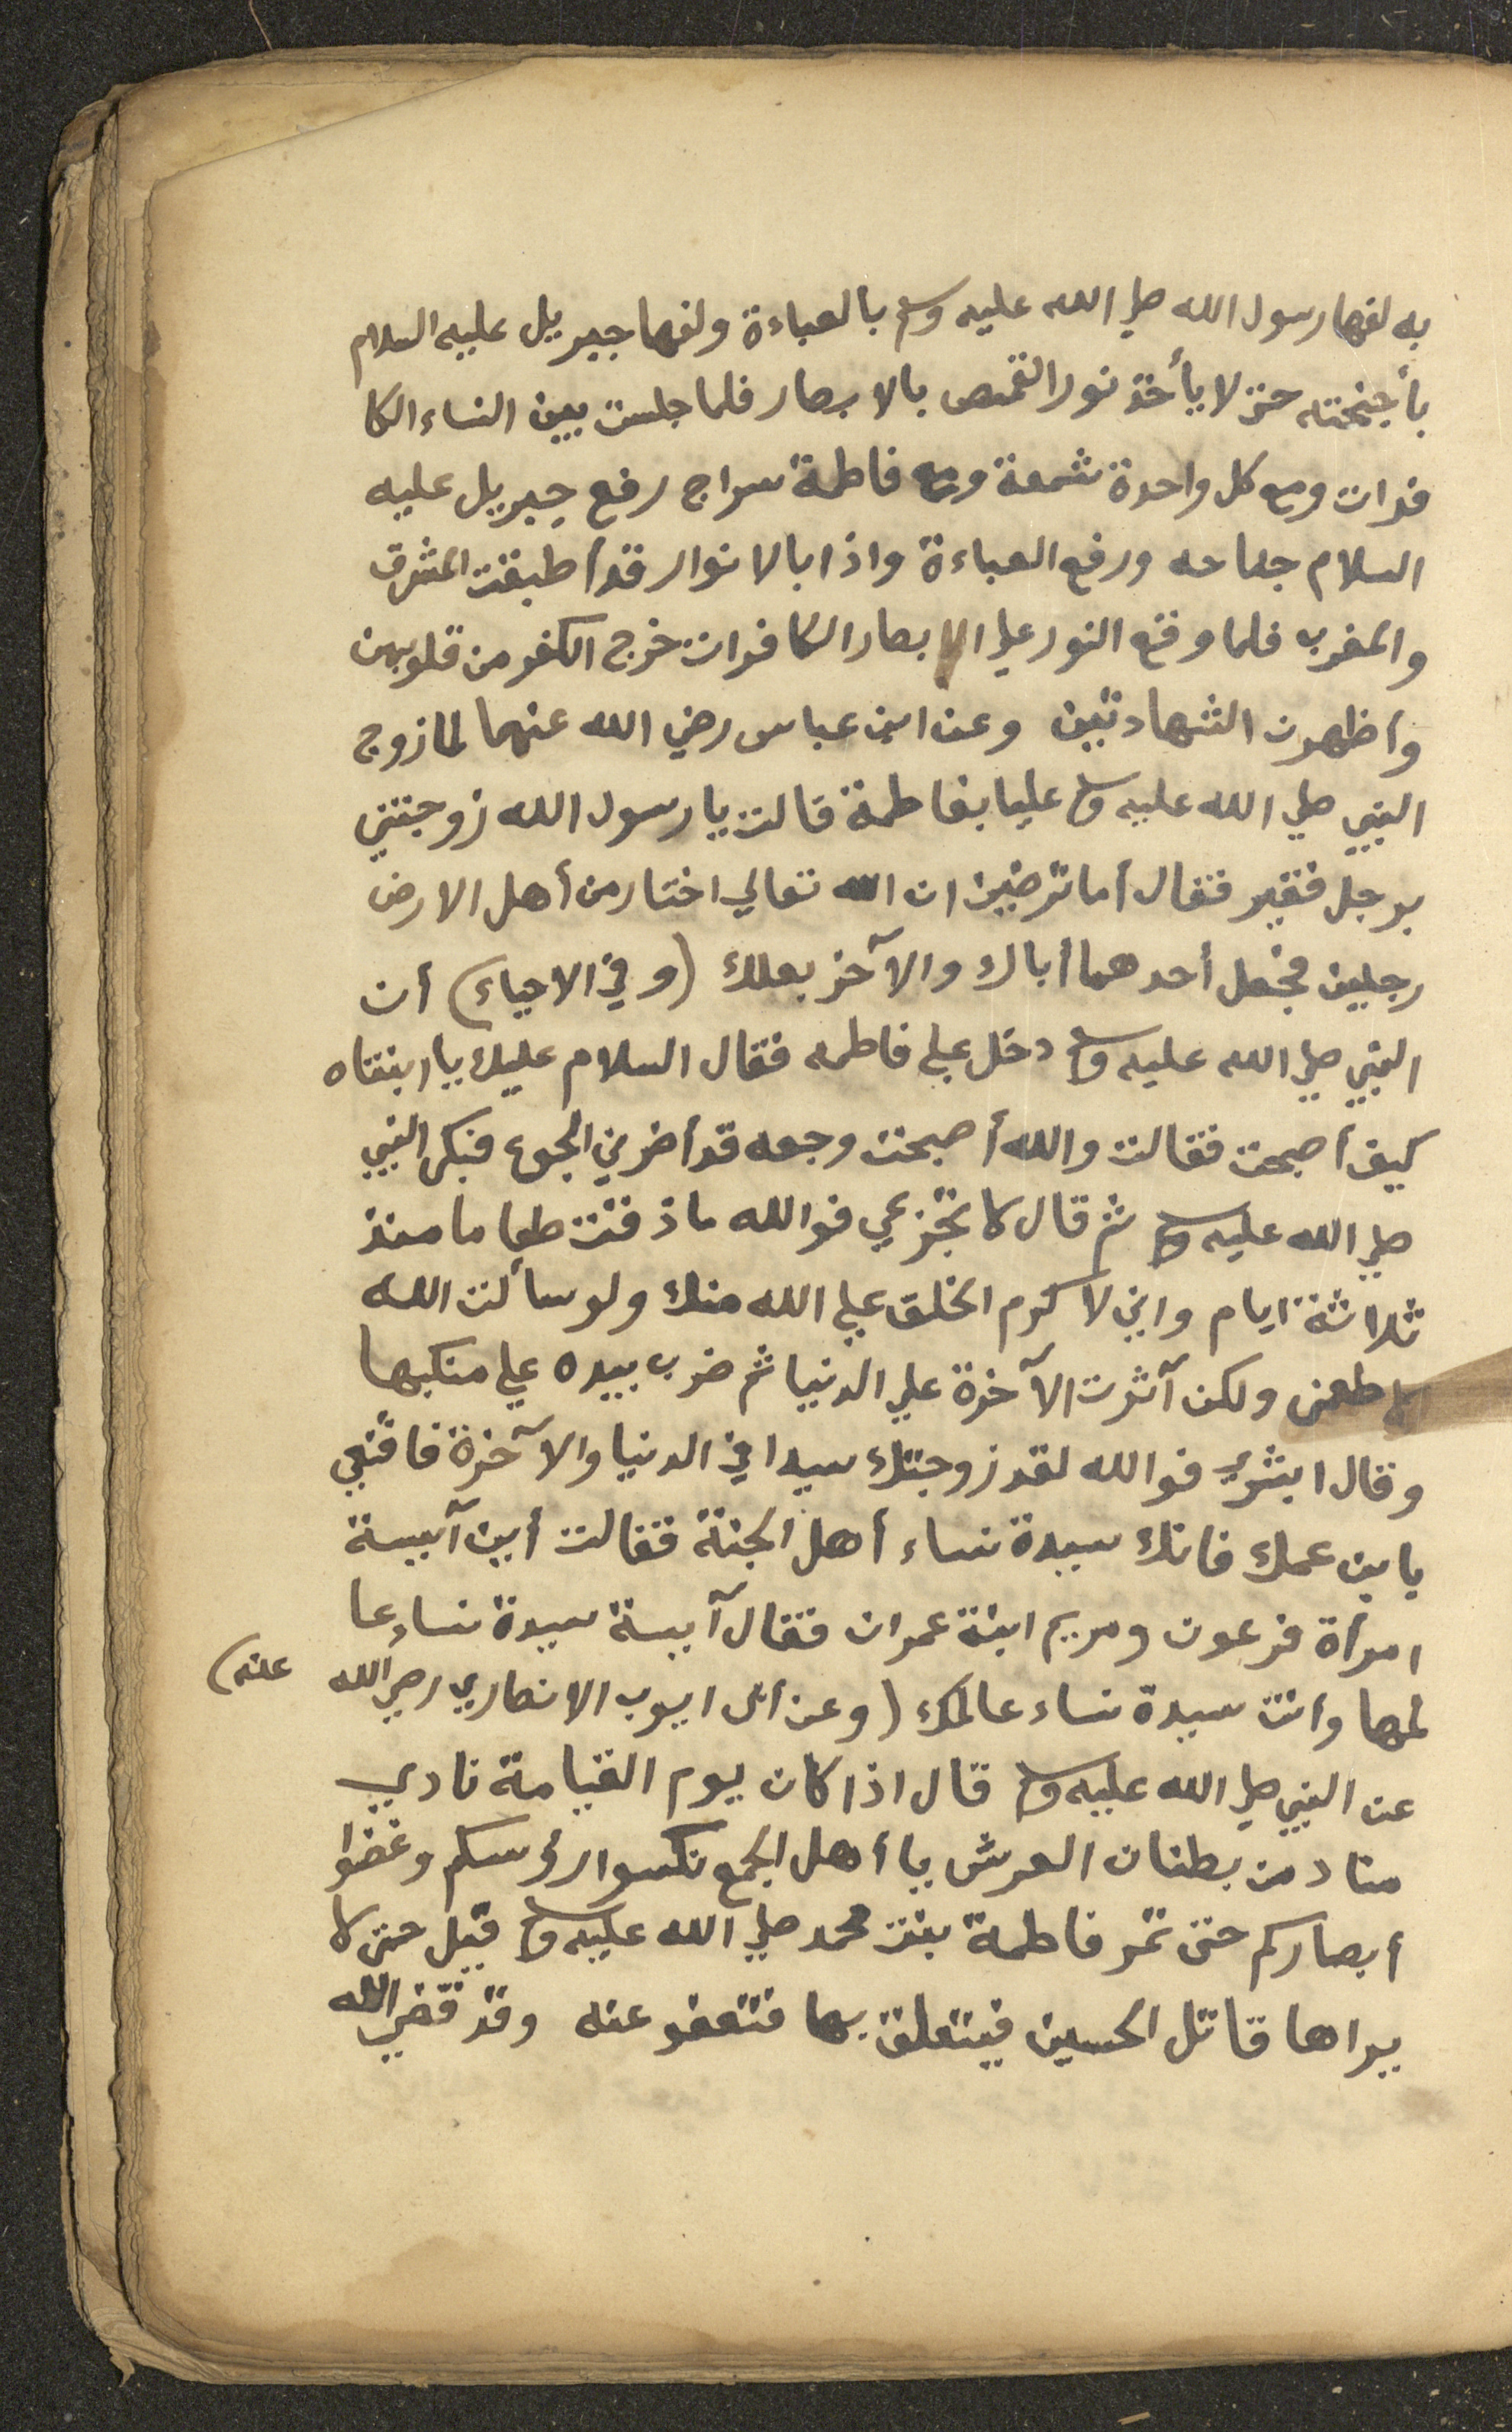 به لفها رسول الله صلي الله عليه وسلم بالعباءة ولفها جبريل عليه السلام
بأجنحته حتى لا يأخذ نور القمص بالابصار فلما جلست بين النساء الكا
فرات ومع كل واحدة شمعة ومع فاطمة سراج رفع جبريل عليه
السلام جناحه ورفع العباءة واذا بالانوار قد أطبقت المشرق
والمغرب فلما وقع النور علي الابصار الكافرات خرج الكفر من قلوبهن
وأظهرت الشهادتين وعن ابن عباس رضي الله عنهما لما زوج
النبي صلي الله عليه وسلم عليا بفاطمة قالت يا رسول الله زوجتني
برجل فقير فقال أما ترضين ان الله تعالي اختار من أهل الارض
رجلين فجعل أحدهما أباك والآخر بعلك (وفي الاحياء) أن
النبي صلي الله عليه وسلم دخل علي فاطمه فقال السلام عليك يا ابنتاه
كيف أصبحت فقالت والله أصبحت وجعه قد أضر ني الجوع فبكى النبي
صلي الله عليه وسلم ثم قال لا تجزعي فوالله ما ذقت طعاما منذ
ثلاثة ايام واني لاكرم الخلق علي الله منك ولو سألت الله
لاطعمنى ولكن آثرت الآخرة علي الدنيا ثم ضرب بيده علي منكبها
وقال ابشري فوالله لقد زوجتك سيدا في الدنيا والآخرة فاقنعي
بابن عمك فانك سيدة نساء أهل الجنة فقالت أين آسية
امرأة فرعون ومريم ابنة عمران فقال آسية سيدة نساء عا
لمها وانت سيدة نساء عالمك (وعن أبى ايوب الانصاري رضي الله عنه)
عن النبي صلي الله عليه وسلم قال اذا كان يوم القيامة نادي
مناد من بطنان العرش يا أهل الجمع نكسوا رؤسكم وغضوا
أبصاركم حتى تمر فاطمة بنت محمد صلي الله عليه وسلم قيل حتى لا
يراها قاتل الحسين فيتعلق بها فتعفو عنه وقد قضي الله